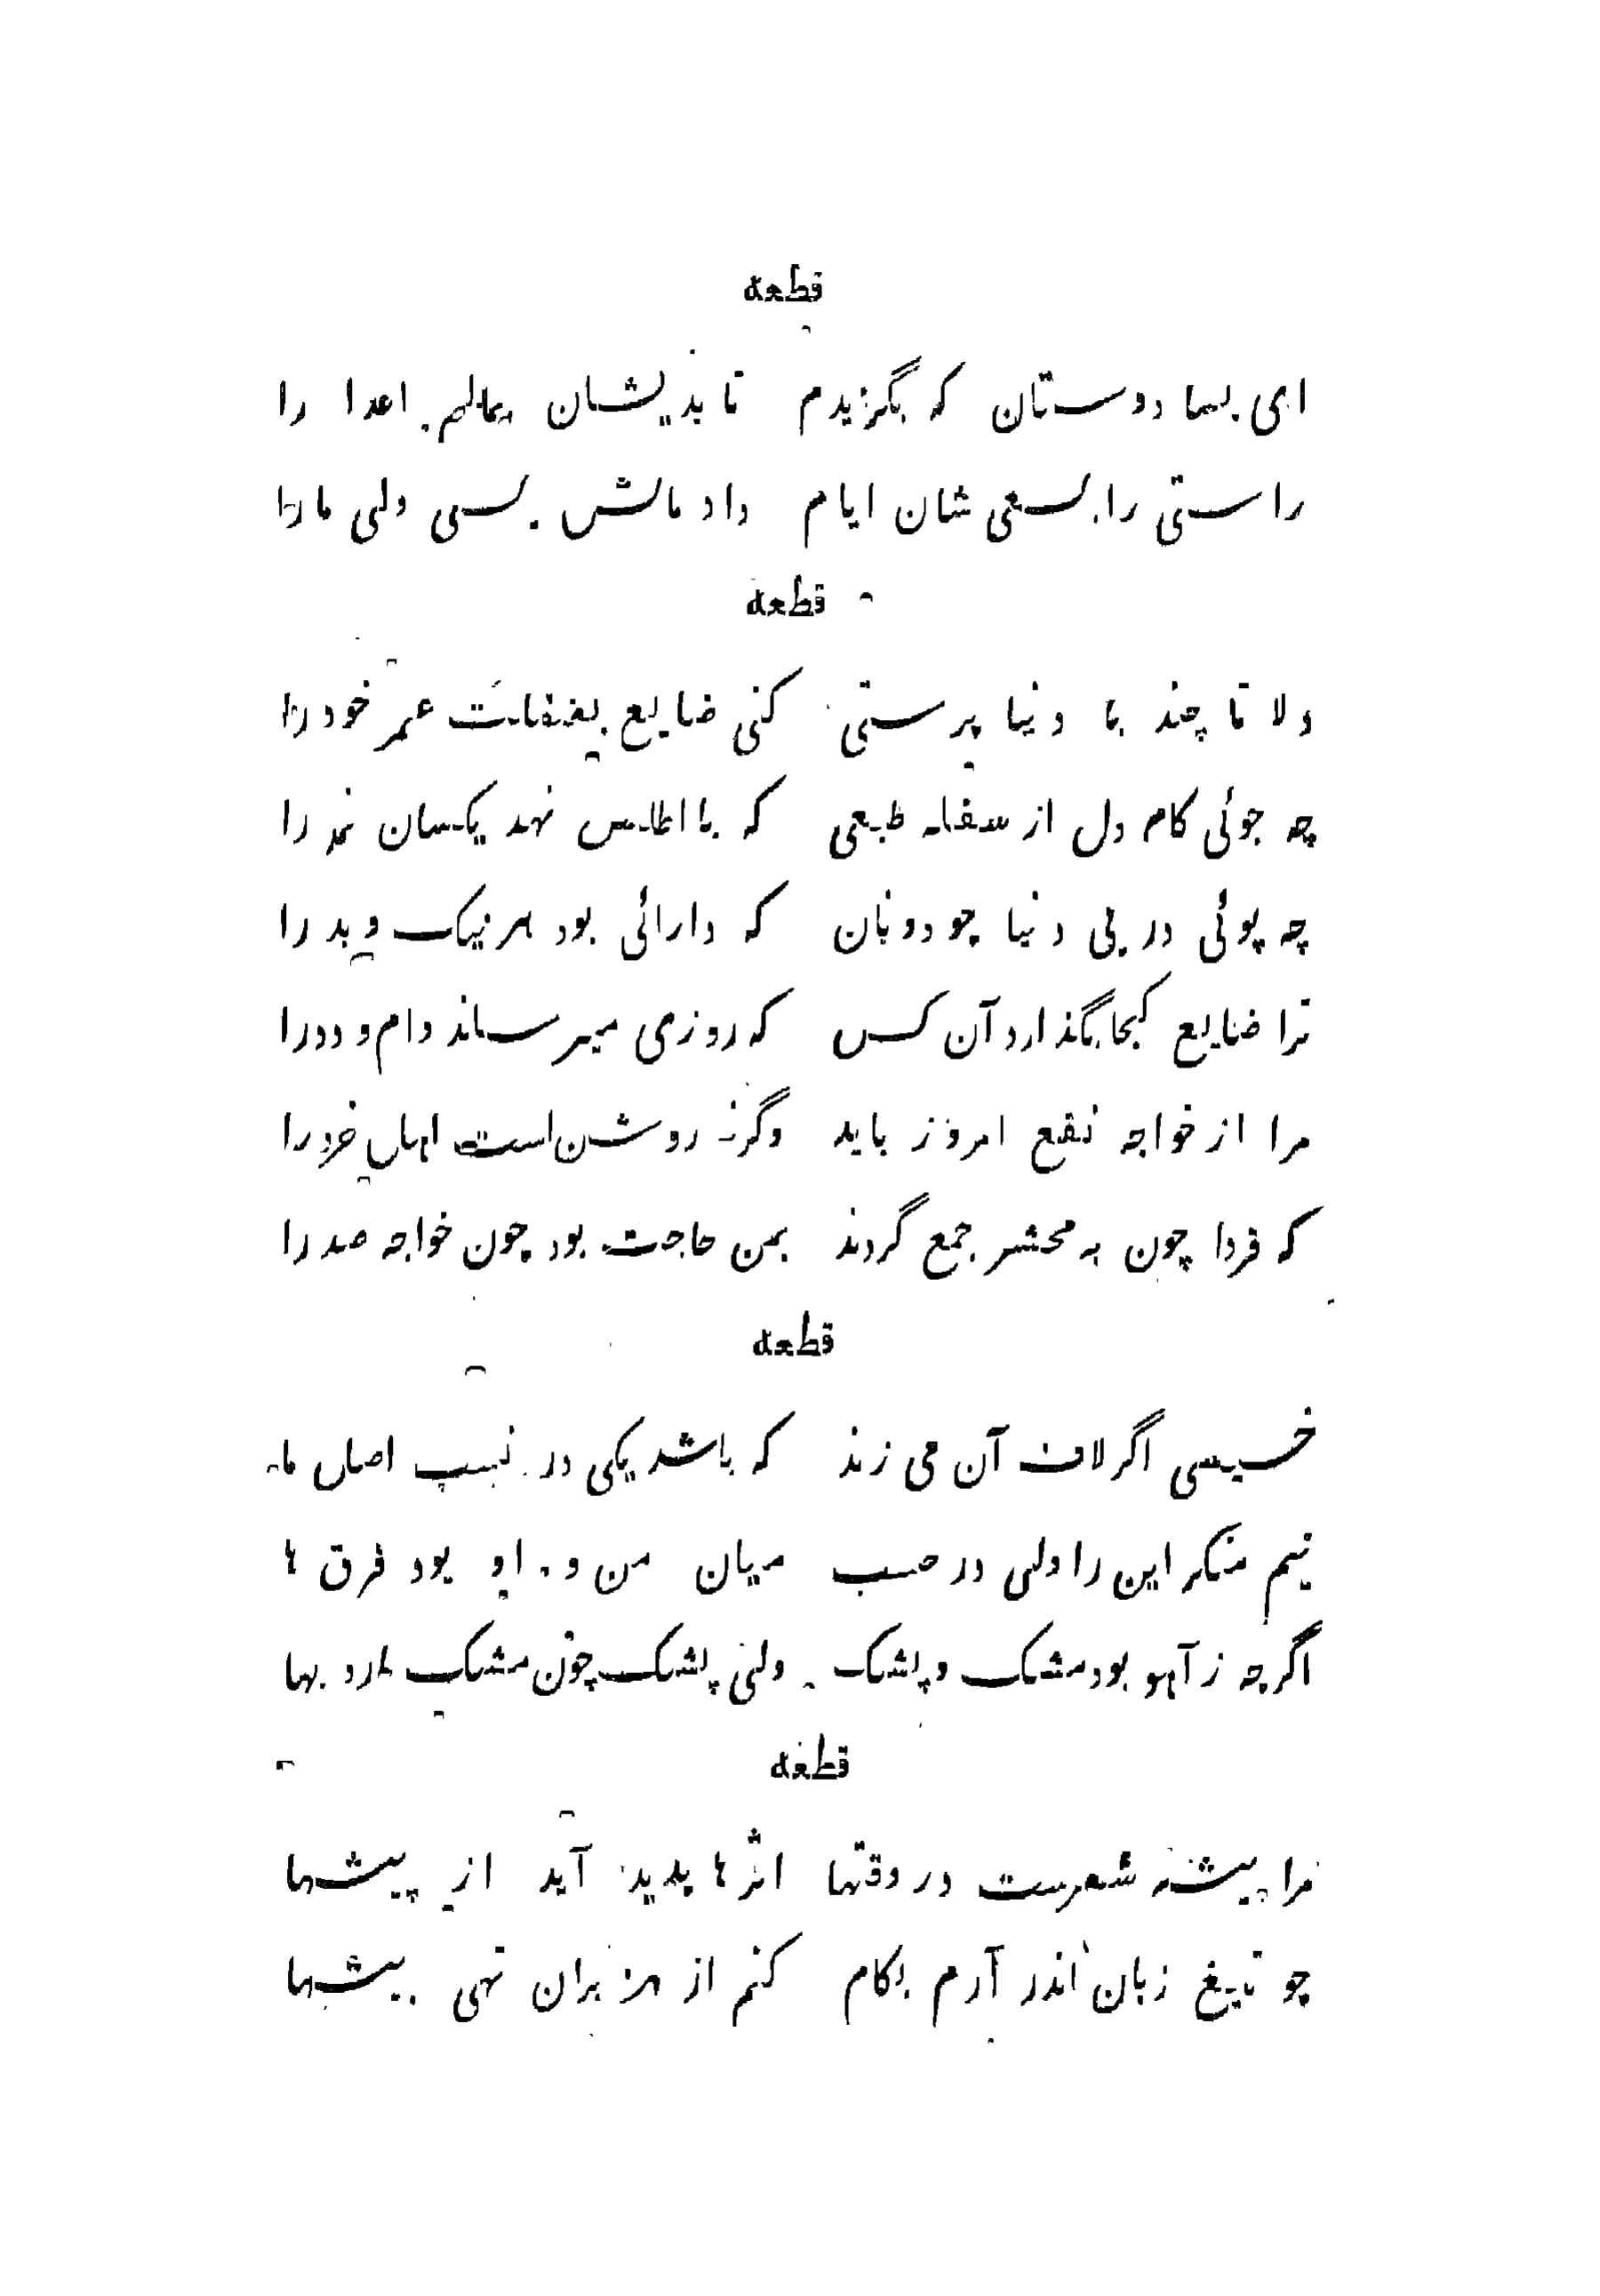 قطعه
ای بسا دوستان که بگزیدم تا بدیشان بمالم اعدا را
راستی را بسعی شان ایام داد مالش بسی ولی ما را
قطعه
دلا تا چند با دنیا پرستی کنی ضایع بغفلت عمر خود را
چه جوئی کام دل از سفله طبعی که با اطلس نهد یکسان نمد را
چه پوئی در پی دنیا چو دونان که دارائی بود هر نیک و بد را
ترا ضایع کجا بگذارد آن کس که روزی میرساند دام و دد را
مرا از خواجه نفع امروز باید وگرنه روشن است اهل خرد را
که فردا چون به محشر جمع گردند بمن حاجت بود چون خواجه صد را
قطعه
خسیسی اگر لاف آن می زند که باشد یکی در نسب اصل ما
نیم منکر این را ولی در حسب میان من و او بود فرق ها
اگرچه ز آهو بود مشک و پشک ولی پشک چون مشک دارد بها
قطعه
مرا پیشه شعرست در وقتها اثر ها پدید آید از پیشها
چو تیغ زبان اندر آرم بکام کنم از هزبران تهی بیشها